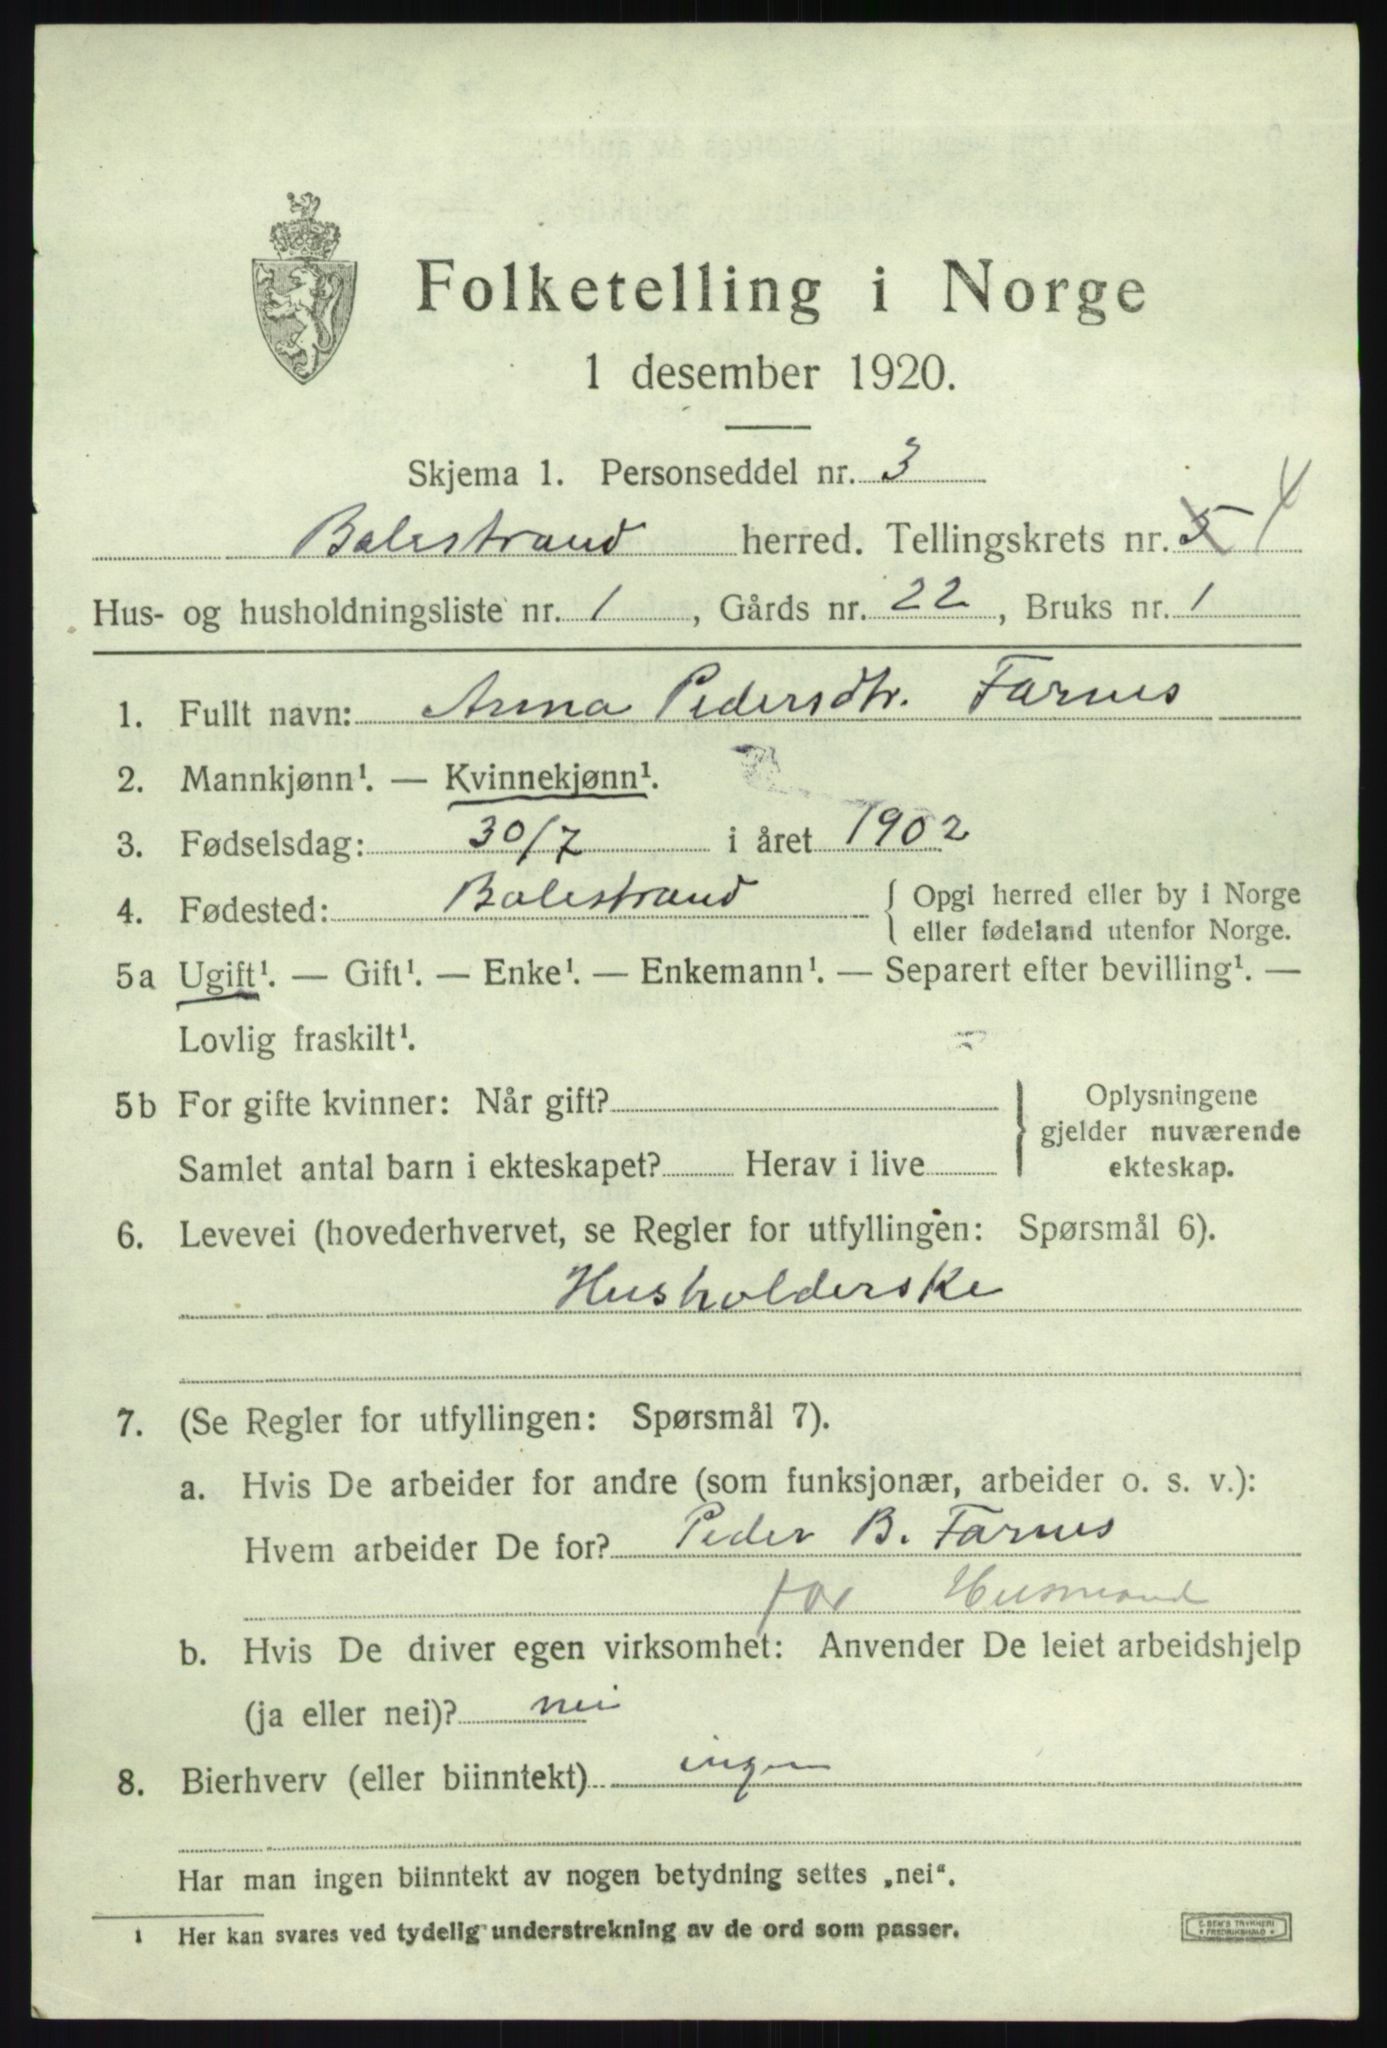 Folketelling i Norge
1 desember 1920.
Skjema 1. Personseddel nr. 3
Balestrand herred. Tellingskrets nr. 5 4
Hus- og husholdningsliste nr. 1, Gårds nr. 22, Bruks nr. 1
1. Fullt navn: Anna Pedersdtr. Farnes
2. Mannkjønn¹. — Kvinnekjønn¹.
3. Fødselsdag: 30/7 i året 1902
4. Fødested: Balestrand { Opgi herred eller by i Norge
eller fødeland utenfor Norge.
5a Ugift¹. — Gift¹. — Enke¹. — Enkemann¹. — Separert efter bevilling¹. —
Lovlig fraskilt¹.
5b For gifte kvinner: Når gift?
Samlet antal barn i ekteskapet? Herav i live
} Oplysningene
gjelder nuværende
ekteskap.
6. Levevei (hovederhvervet, se Regler for utfyllingen: Spørsmål 6).
Husholderske
7. (Se Regler for utfyllingen: Spørsmål 7).
a. Hvis De arbeider for andre (som funksjonær, arbeider o. s. v.):
Hvem arbeider De for? Peder B. Farnes
far Husmand
b. Hvis De driver egen virksomhet: Anvender De leiet arbeidshjelp
(ja eller nei)? nei
8. Bierhverv (eller biinntekt) ingen
Har man ingen biinntekt av nogen betydning settes „nei“.
1 Her kan svares ved tydelig understrekning av de ord som passer.
E. SEM'S TRYKKERI
* FREDRIKSHALD *